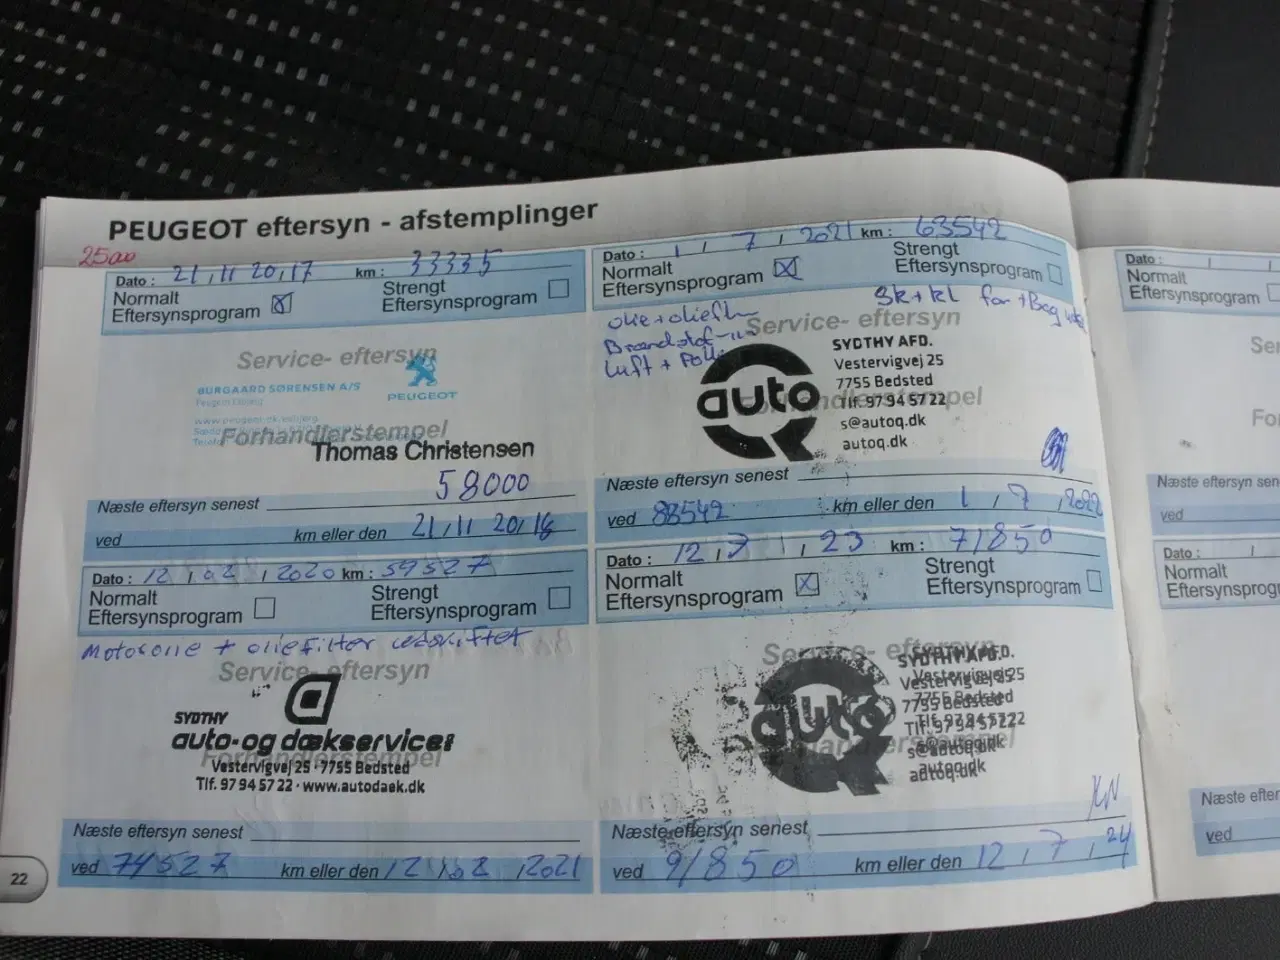 PEUGEOT eftersyn - afstemplinger
25000
Dato : 21 , 11 20 , 17 km : 33335
Normalt
Eftersynsprogram
Strengt
Eftersynsprogram
Service- eftersyn
BURGAARD SØRENSEN A/S
PEUGEOT
Forhandlerstempel
Thomas Christensen
58000
Næste eftersyn senest
ved km eller den 21 , 11 20 , 18
Dato : 12 , 02 , 2020 km : 59527
Normalt
Eftersynsprogram
Strengt
Eftersynsprogram
Motorolie + oliefilter udskiftet
Service- eftersyn
SYDTHY
auto-og dækservice
Forhandlerstempel
Vestervigvej 25 · 7755 Bedsted
Tlf. 97 94 57 22 · www.autodaek.dk
Næste eftersyn senest
ved 74527 km eller den 12 , 02 , 2021
22
Dato : 1 , 7 , 2021 km : 63542
Normalt
Eftersynsprogram
Strengt
Eftersynsprogram
Sk+kl for + Bag
olie + oliefilter
Luft +
Service- eftersyn
auto
SYDTHY AFD.
Vestervigvej 25
7755 Bedsted
Forhandlerstempel
Tlf. 97 94 57 22
s@autoq.dk
autoq.dk
Næste eftersyn senest
ved 83542 km eller den 1 , 7 , 2022
Dato : 12 , 7 , 23 km : 71850
Normalt
Eftersynsprogram
Strengt
Eftersynsprogram
Service- eftersyn
auto
SYDTHY AFD.
Vestervigvej 25
7755 Bedsted
Tlf. 97 94 57 22
Forhandlerstempel
s@autoq.dk
autoq.dk
Næste eftersyn senest
ved 91850 km eller den 12 , 7 , 24
Dato :
Normalt
Eftersynsprog
Ser
Fo
Næste eftersyn sen
ved
Dato :
Normalt
Eftersynsprog
Næste efter
ved